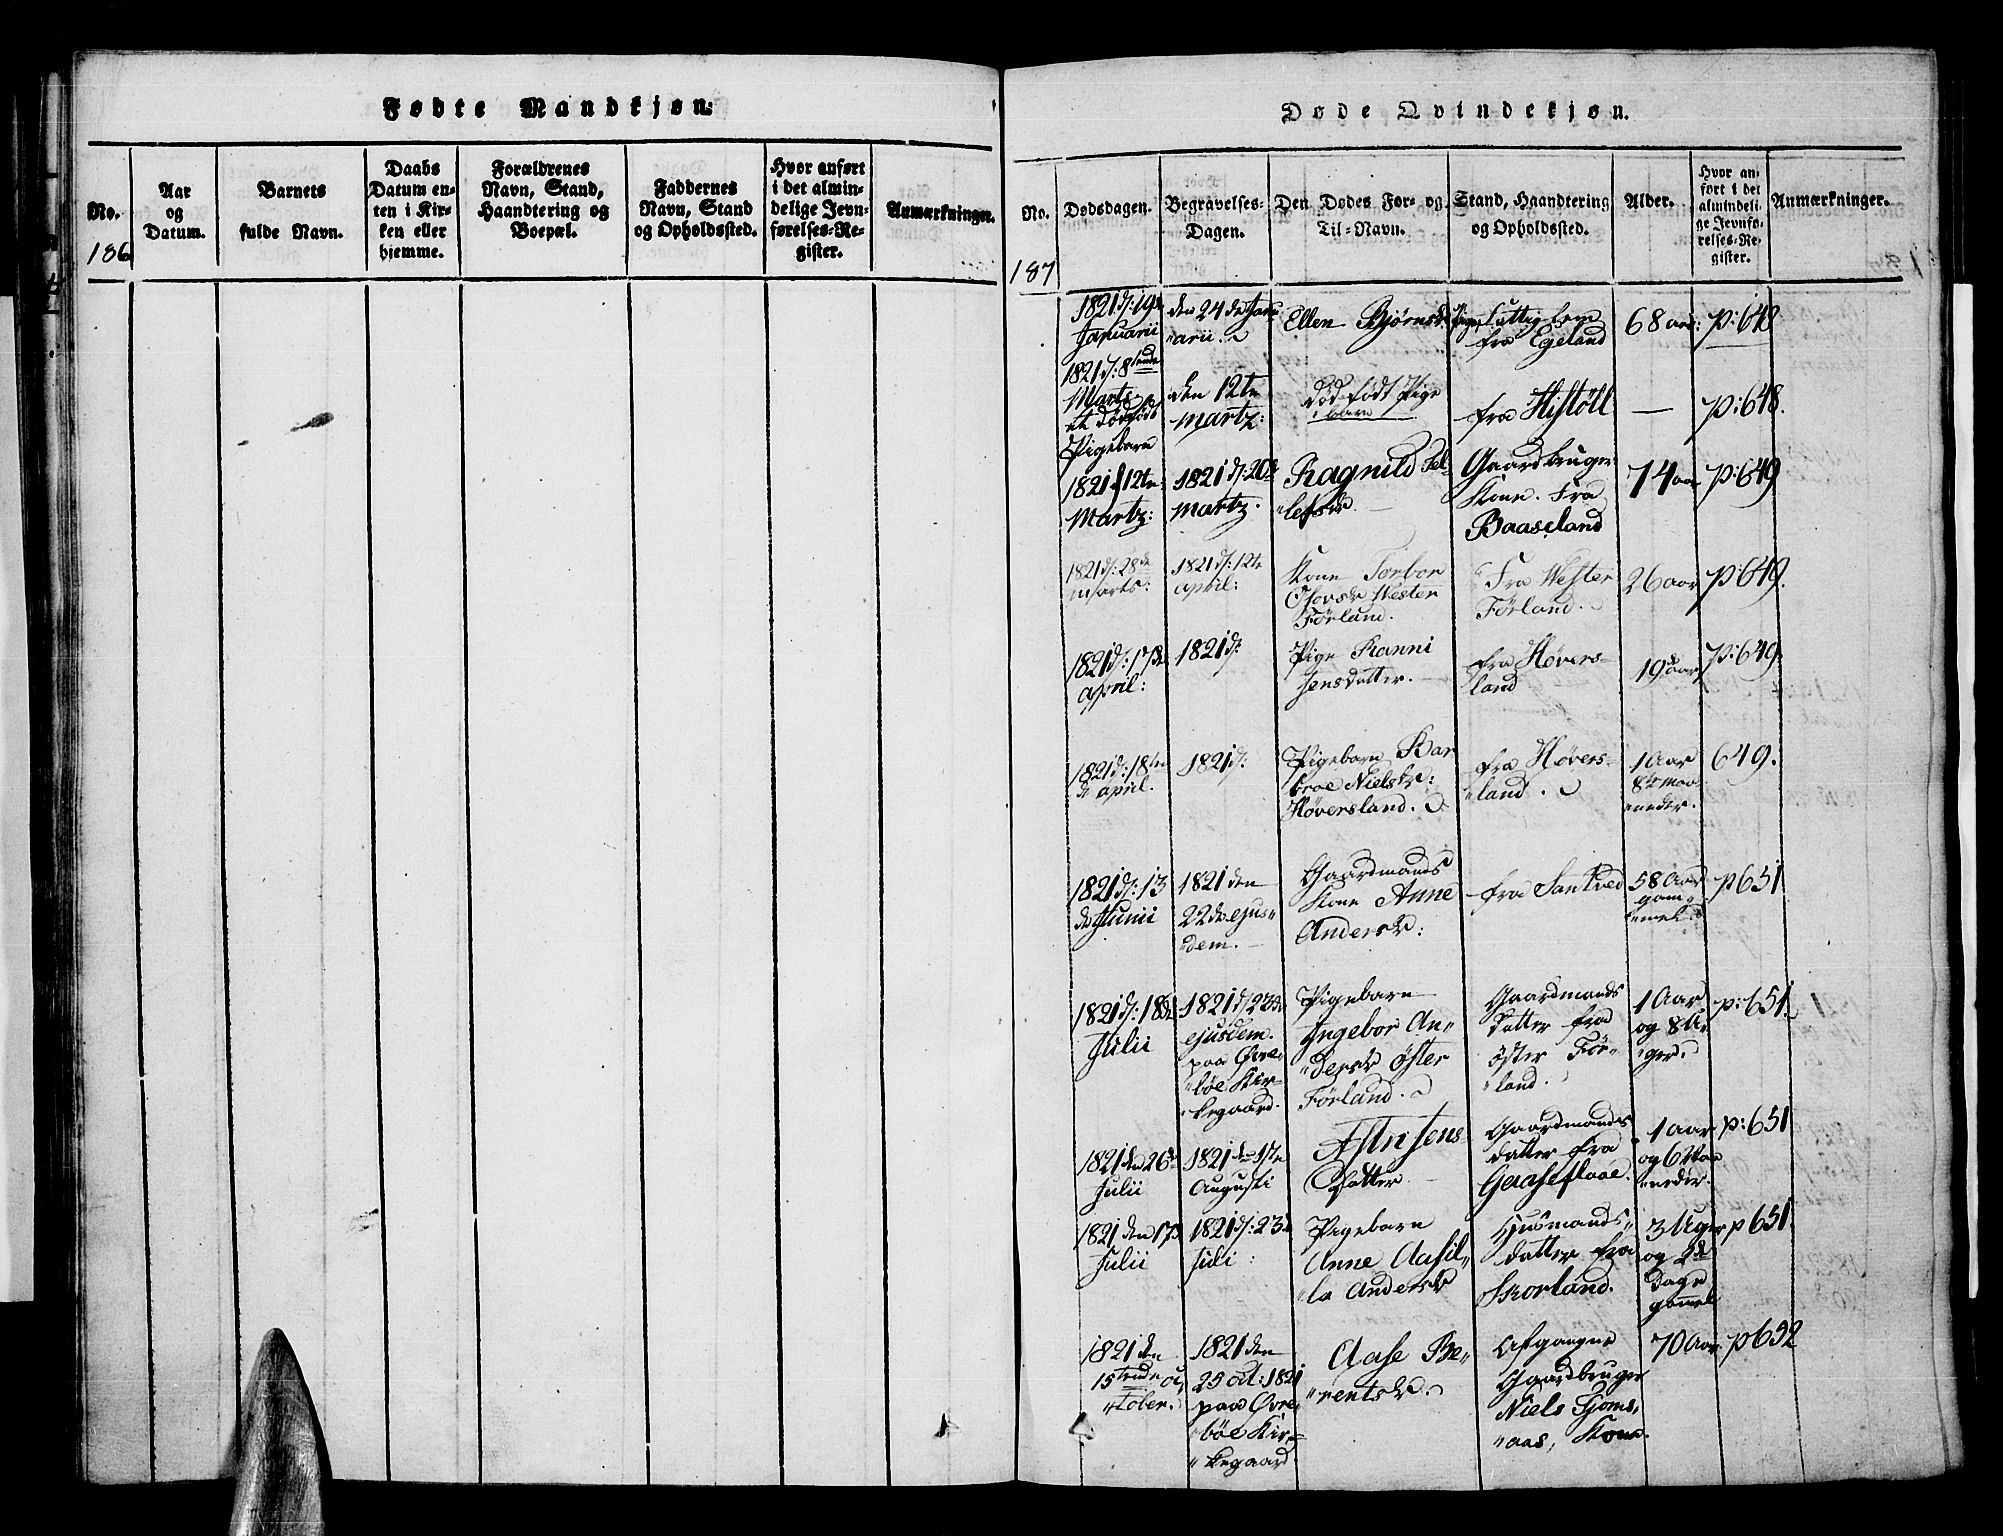 Fødte Mandkjøn.
No.
186
Aar
og
Datum.
Barnets
fulde Navn.
Daabs
Datum en-
ten i Kir-
ken eller
hjemme.
Forældrenes
Navn, Stand,
Haandtering og
Boepæl.
Faddernes
Navn, Stand
og Opholdssted.
Hvor anført
i det almin-
delige Jevn-
førelses-Re-
gister.
Anmærkninger.
Døde Qvindekjøn.
No.
187
Dødsdagen.
Begravelses-
Dagen.
Den Dødes For- og
Til-Navn.
Stand, Haandtering
og Opholdssted.
Alder.
Hvor an-
ført i det
almindeli-
ge Jevnfø-
relses-Re-
gister.
Anmærkninger.
1821 d: 19de
Januarii
den 24de Janu
arii.
Ellen Bjørnsdr
fra Egeland
68 aar
p: 648
1821 d: 8
Marts
et dødfødt
Pigebarn
den 12te
martz:
Død født Pige
barn
fra Histöll
—
p: 648.
1821 d 12te
Martz:
1821 d: 20de
martz.
Ragnild Tel-
lefsdr.
Gaardbruger
Kone. Fra
Baaseland
74 aar
p: 649
1821 d: 28de
marts:
1821 d: 12te
april:
Kone Torbor
Wester
Førland.
Fra Wester
Førland.
26 aar
p: 649.
1821 d: 17de
april:
1821 d:
Pige Ranni
Jensdatter.
fra Høvers-
land
19 aar
p: 649.
1821 d: 18
de april.
1821 d:
Pigebarn Bar
broe Nielsdr:
Høversland.
fra Høvers-
land.
1 Aar
8te maa-
neder.
649.
1821 d: 13
de Junii
1821 den
22de ejus-
dem.
Gaardmands
Kone Anne
Andersdr:
fra Santved
58 Aar
gam-
mel.
p 651
1821 d: 18de
Julii
1821 d 23de
ejusdem.
paa Øvre-
bøe Kir-
kegaard.
Pigebarn
Ingebor An-
dersdr Öster
Førland.
Gaardmands
datter fra
öster För-
land.
1 Aar
og 8 U-
ger.
p: 651.
1821 den 26de
Julii
1821 den 1ste
Augusti
Datter
Gaardmands
datter fra
Gaaseflaae.
1 aar
og 6 Maa
neder.
p: 651
1821 den 17de
Julii
1821 d: 23de
Juli:
Pigebarn
Anne Aasil-
la Andersdr
Huusmands
datter fra
Skorland.
3 Uger
og 2de
Dage
gammel
p 651.
1821 den
15tende Oc
tober.
1821 den
25 oct: 1821
paa Øvre
bøe Kir-
kegaard
Aase Be-
rentsdr.
Afgangne
Gaardbruger
Niels Tjoms-
aas, Kone.
70 Aar
p 652